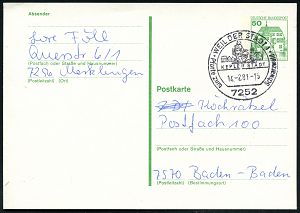 Absender
Jore Föll
Querstr 6/1
(Postfach oder Straße und Hausnummer)
7256 Merklingen
(Postleitzahl) (Ort)
WEIL DER STADT
KEPLER-STADT
14.-2.81.-15
7252
DEUTSCHE BUNDESPOST
50
Postkarte
ZDF Kochrätsel
Postfach 100
(Postfach oder Straße und Hausnummer)
7570 Baden-Baden
(Postleitzahl) (Bestimmungsort)